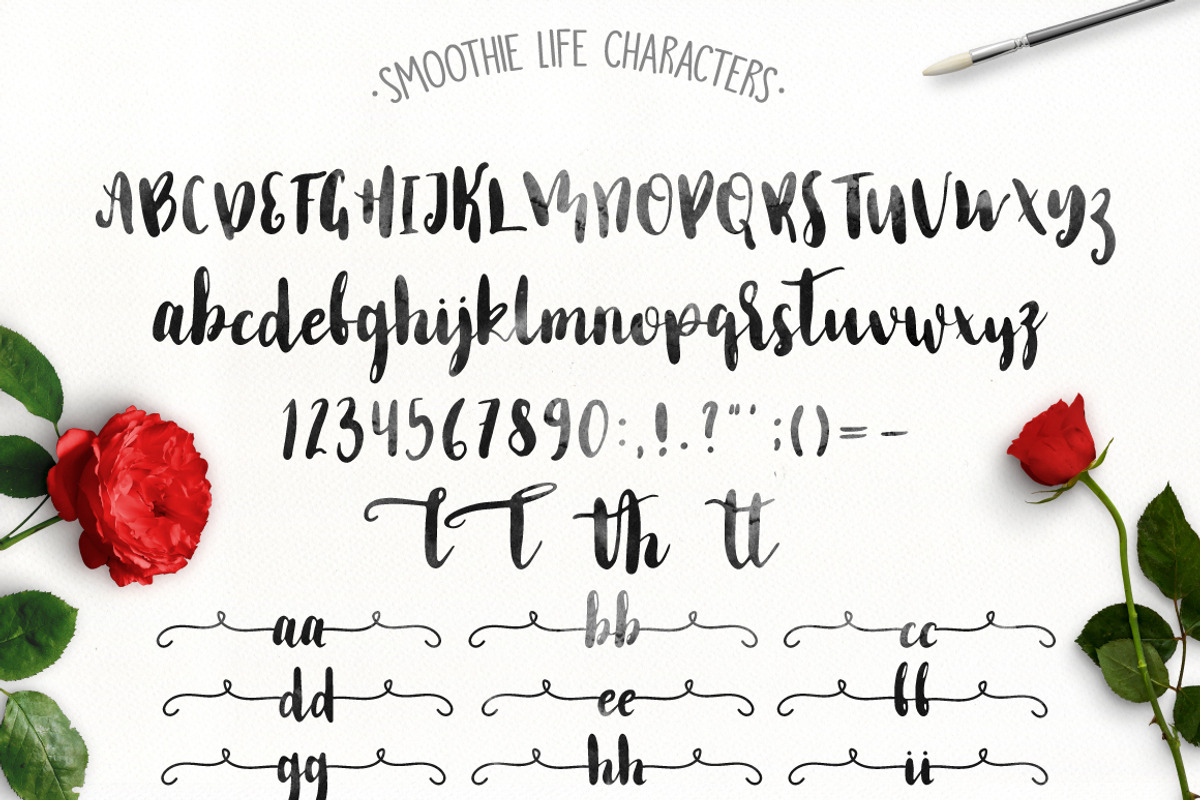 ·SMOOTHIE LIFE CHARACTERS·
ABCDEFGHIJKLMNOPQRSTUVWXYZ
abcdefghijklmnopqrstuvwxyz
1234567890:,!.?"';()=-
t t th tt
aa bb cc
dd ee ff
gg hh ii